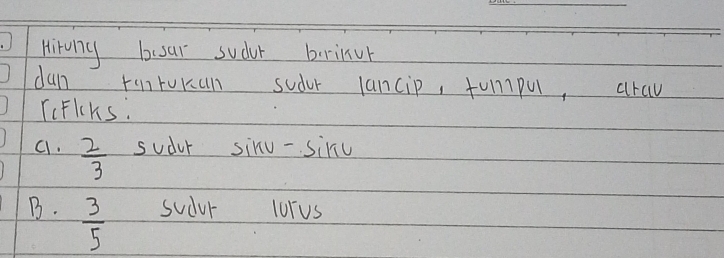 Hitung besar sudut berikut
dan tentukan sudut lancip, tumpul, atau
refleks:
a. 2/3 sudut siku-siku
B. 3/5 sudut lurus